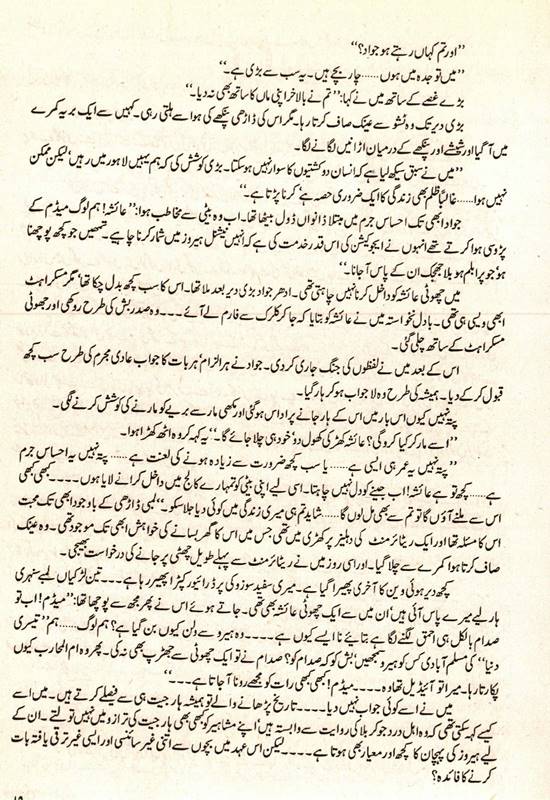 ’’اور تم کہاں رہتے ہو جواد؟‘‘
’’میں تو جدہ میں ہوں......چار بچے ہیں۔ یہ سب سے بڑی ہے۔‘‘
بڑے غصے کے ساتھ میں نے کہا: ’’تم نے بالآخر اپنی ماں کا ساتھ بھی نہ دیا۔‘‘
بڑی دیر تک وہ ٹشو سے عینک صاف کرتا رہا۔ مگر اس کی ڈاڑھی پنکھے کی ہوا سے ہلتی رہی۔ کہیں سے ایک بریہ کمرے
میں آ گیا اور شیشے اور پنکھے کے درمیان اڑانیں لگانے لگا۔
’’میں نے سبق سیکھ لیا ہے کہ انسان دو کشتیوں کا سوار نہیں ہو سکتا۔ بڑی کوشش کی کہ ہم یہیں لاہور میں رہیں‘ لیکن ممکن
نہیں ہوا......غالباً ظلم بھی زندگی کا ایک ضروری حصہ ہے‘ کرنا پڑتا ہے۔‘‘
جواد ابھی تک احساس جرم میں مبتلا ڈانواں ڈول بیٹھا تھا۔ اب وہ بیٹی سے مخاطب ہوا: ’’عائشہ! ہم لوگ میڈم کے
پڑوسی ہوا کرتے تھے انہوں نے ایجوکیشن کی اس قدر خدمت کی ہے کہ انہیں نیشنل ہیروز میں شمار کرنا چاہیے۔ تمہیں جو کچھ پوچھنا
ہو‘ جو پرابلم ہو بلا جھجک ان کے پاس آ جانا۔‘‘
میں چھوٹی عائشہ کو داخل کرنا نہیں چاہتی تھی۔ ادھر جواد بڑی دیر بعد ملا تھا۔ اس کا سب کچھ بدل چکا تھا‘ مگر مسکراہٹ
ابھی ویسی ہی تھی۔ بادل نخواستہ میں نے عائشہ کو بتایا کہ جا کر کلرک سے فارم لے آئے۔۔۔وہ صدر بش کی طرح روکھی اور جھوٹی
مسکراہٹ کے ساتھ چلی گئی۔
اس کے بعد میں نے لفظوں کی جنگ جاری کر دی۔ جواد نے ہر الزام‘ ہر بات کا جواب عادی مجرم کی طرح سب کچھ
قبول کر کے دیا۔ ہمیشہ کی طرح وہ لاجواب ہو کر ہار گیا۔
پتہ نہیں کیوں اس بار میں اس کے ہار جانے پر اداس ہو گئی اور مکھی مار سے بریے کو مارنے کی کوشش کرنے لگی۔
’’اسے مار کر کیا کرو گی؟ عائشہ کھڑکی کھول دو‘ خود ہی چلا جائے گا۔‘‘ یہ کہہ کر وہ اٹھ کھڑا ہوا۔
’’پتہ نہیں یہ عمر ہی ایسی ہے......یا سب کچھ ضرورت سے زیادہ ہونے کی لعنت ہے......پتہ نہیں یہ احساس جرم
ہے......کچھ تو ہے عائشہ! اب جینے کو دل نہیں چاہتا۔ اسی لیے اپنی بیٹی کو تمہارے کالج میں داخل کرانے لایا ہوں۔۔۔۔کبھی کبھی
اس سے ملنے آؤں گا تو تم سے بھی مل لوں گا۔۔۔۔شاید تم ہی میری زندگی میں کوئی دیا جلا سکو۔‘‘ لمبی ڈاڑھی کے باوجود ابھی تک محبت
اس کا مسئلہ تھا اور ایک ریٹائرمنٹ کی دہلیز پر کھڑی میں تھی جس میں اس کا گھر بسانے کی خواہش ابھی تک موجود تھی۔ وہ عینک
صاف کرتا ہوا کمرے سے چلا گیا۔ اور اسی روز میں نے ریٹائرمنٹ سے پہلے طویل چھٹی پر جانے کی درخواست بھیجی۔
کچھ دیر ہوئی وین کا آخری پھیرا گیا ہے۔ میری سفید سوزوکی پر ڈرائیور کپڑا پھیر رہا ہے۔۔۔تین لڑکیاں لمبے سنہری
ہار لیے میرے پاس آئی ہیں‘ ان میں سے ایک چھوٹی عائشہ بھی تھی۔ جاتے ہوئے اس نے پھر مجھ سے پوچھا تھا: ’’میڈم! اب تو
صدام بالکل ہی احمق لگنے لگا ہے بتایئے نا ایسے کیوں ہے۔۔۔۔وہ ہیرو سے ولن کیوں بن گیا ہے؟ ہم لوگ......ہم ’’تیسری
دنیا‘‘ کی مسلم آبادی کس کو ہیرو سمجھیں‘ بش کو کہ صدام کو؟ صدام نے تو ایک چھوٹی سے جھڑپ بھی نہ کی۔ پھر وہ ام المحارب کیوں
پکارتا رہا۔ میرا تو آئیڈیل تھا وہ۔۔۔۔میڈم! کبھی کبھی رات کو مجھے رونا آ جاتا ہے۔۔۔‘‘
میں نے اسے کوئی جواب نہیں دیا۔۔۔۔تاریخ پڑھانے والے تو ہمیشہ ہار جیت ہی سے فیصلے کرتے ہیں۔ میں اسے
کیسے کہہ سکتی تھی کہ وہ اہل درد جو کربلا کی روایت سے وابستہ ہیں‘ اپنے مشاہیر کو کبھی بھی ہار جیت کی ترازو میں نہیں تولتے۔ ان کے
لیے ہیروز کی پہچان کا کچھ اور معیار بھی ہوتا ہے۔۔۔۔لیکن اس عہد میں بچوں سے اتنی غیر سائنسی اور ایسی غیر ترقی یافتہ بات
کرنے کا فائدہ؟